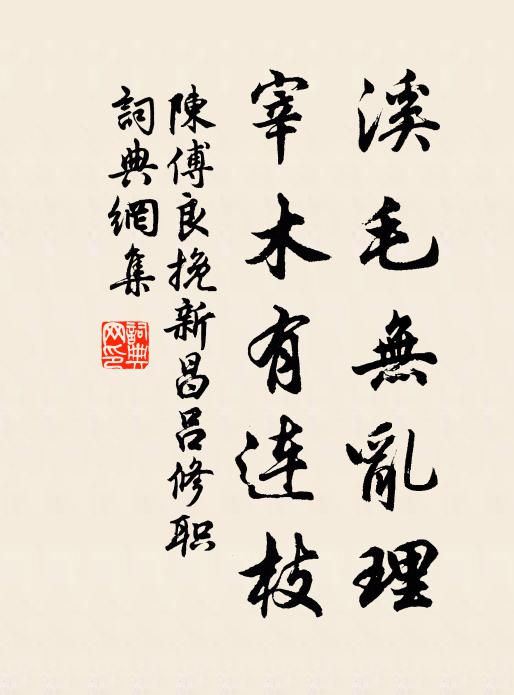 溪毛無亂理
宰木有连枝
陳傅良挽新昌吕修职
詞典網集
詞典網印